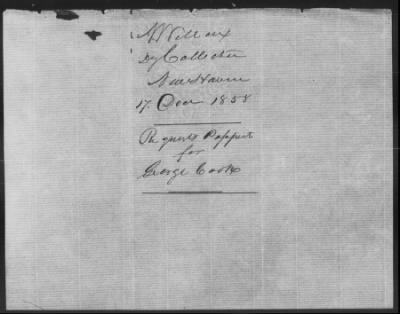 A Willcox
Dy Collector
New Haven
17. Decr 1858
Requests Passport
for
George Cook